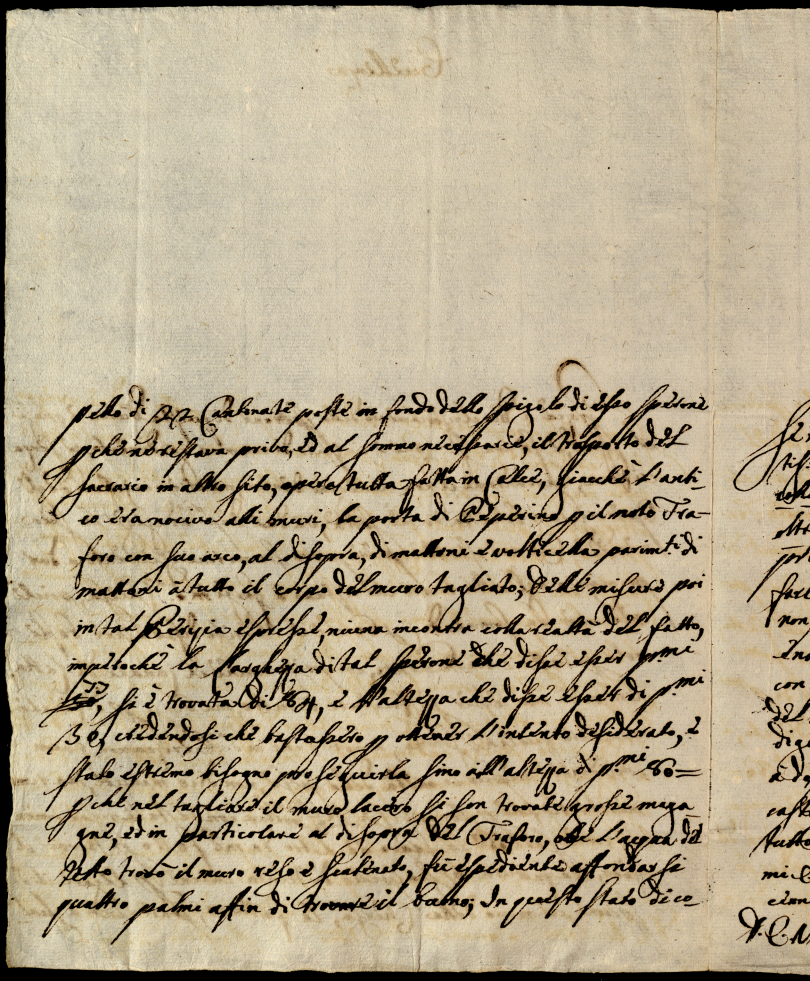 pello di Catenate poste in fondo dello spigolo di esso sperone
p che ne restava privo, ed al sommo necessarie, il trasporto del
sacrario in altro sito, opera tutta fatta in Calce, giacchè l'anti-
co era nocivo alli muri, la porta di Peperino p il noto Tra-
foro con suo arco, al disopra, di mattoni e volticella parimti di
mattoni à tutto il corpo del muro tagliato; Delle misure poi
in tal Perizia espresse, niuna incontra colla realtà del fatto,
imperochè la larghezza di tal sperone che disse esser p.mi
si è trovata di e l'altezza che disse esser di p.mi
30, credendosi che bastassero p ottener l'intento desiderato, è
stato estremo bisogno proseguirla sino all'altezza di p.mi
p che nel tagliare il muro lacero si son trovate grosse maga
gne, ed in particolare al disopra del Traforo, ove l'acqua del
tetto trovò il muro reso e scatenato, fù espediente affondarsi
quattro palmi affin di trovare il buono; In questo stato di co-